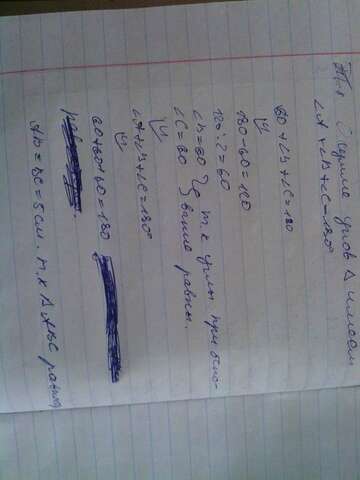 сумме углов Δ имеем
∠A+∠B+∠C=180°
60+∠B+∠C=180
180-60=120
120:2=60
∠B=60 т.к углы при осно-
∠C=60 вание равны.
∠A+∠B+∠C=180°
60+60+60=180
AB=BC=5см. т.к Δ ABC равны